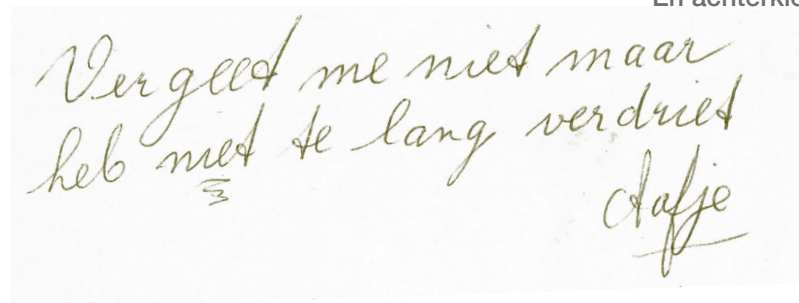 En achterkle
Vergeet me niet maar
heb niet te lang verdriet
Aafje